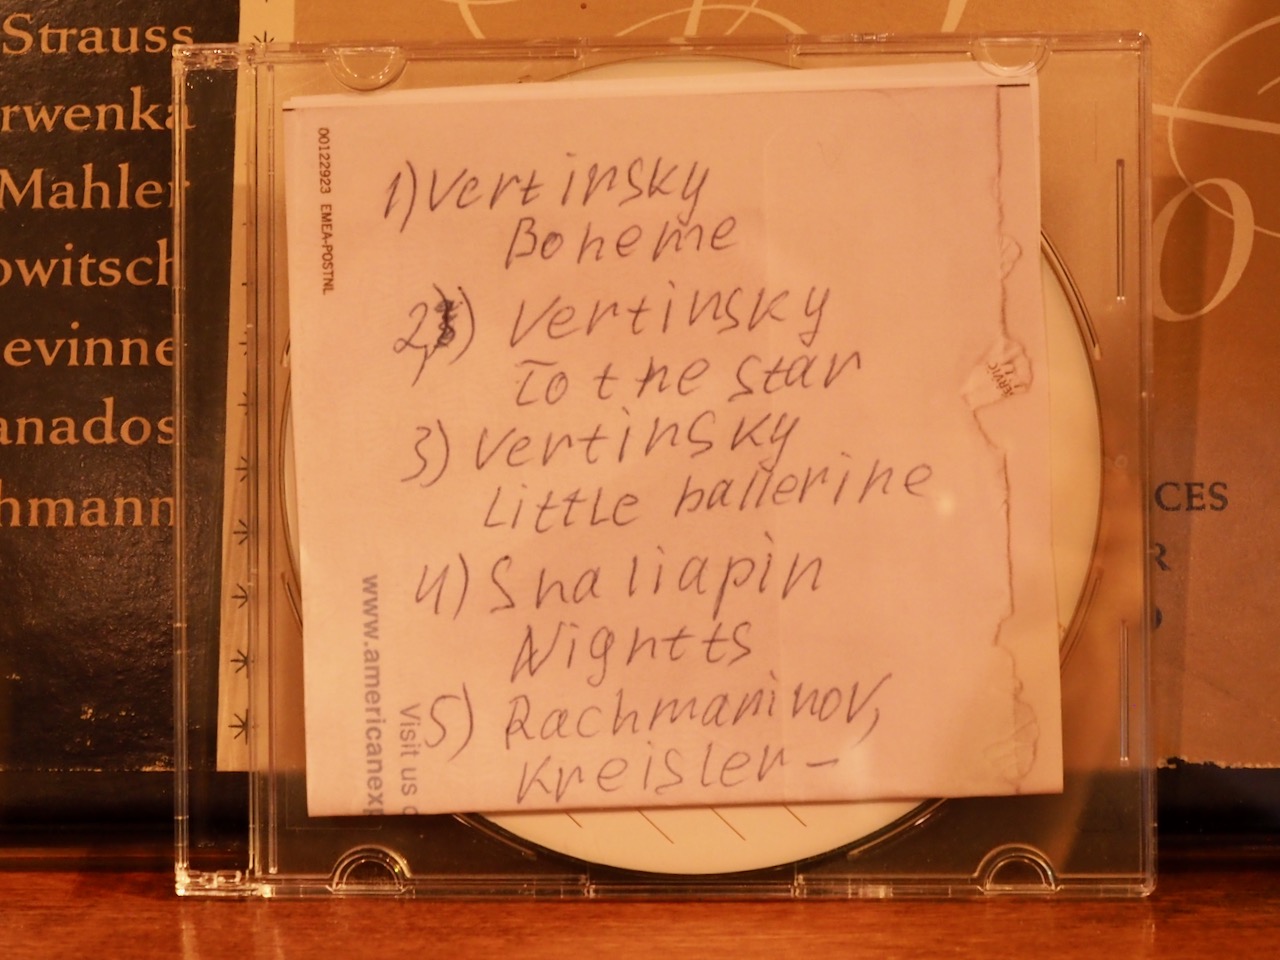 Strauss
rwenka
Mahler
owitsch
evinne
anados
hmann
00122923 EMEA-POSTNL
1) Vertinsky
Boheme
2) Vertinsky
To the star
3) Vertinsky
Little ballerine
4) Shaliapin
Nightts
5) Rachmaninov,
Kreisler –
www.americanexp
Visit us o
CES
R